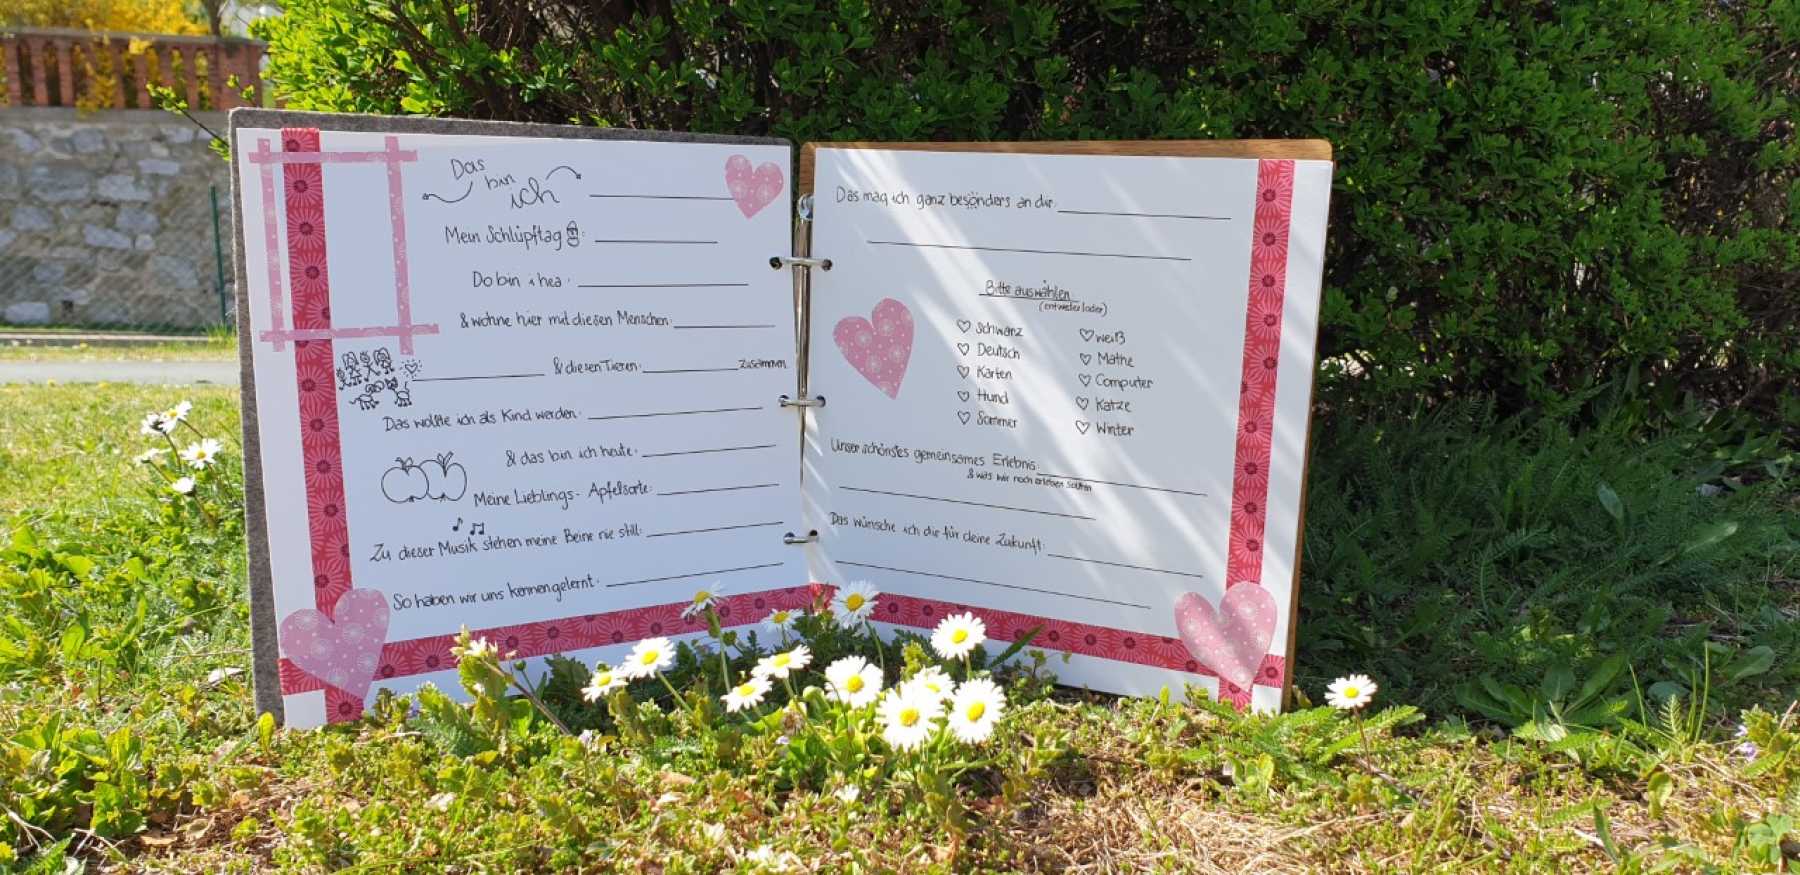 Das bin ich
Mein Schlüpftag :
Do bin i hea :
& wohne hier mit diesen Menschen:
& diesen Tieren: zusammen.
Das wollte ich als Kind werden:
& das bin ich heute:
Meine Lieblings- Apfelsorte:
Zu dieser Musik stehen meine Beine nie still:
So haben wir uns kennengelernt:
Das mag ich ganz besonders an dir:
Bitte auswählen
(entweder/oder)
schwarz weiß
Deutsch Mathe
Karten Computer
Hund Katze
Sommer Winter
Unser schönstes gemeinsames Erlebnis
& was wir noch erleben sollten
Das wünsche ich dir für deine Zukunft: